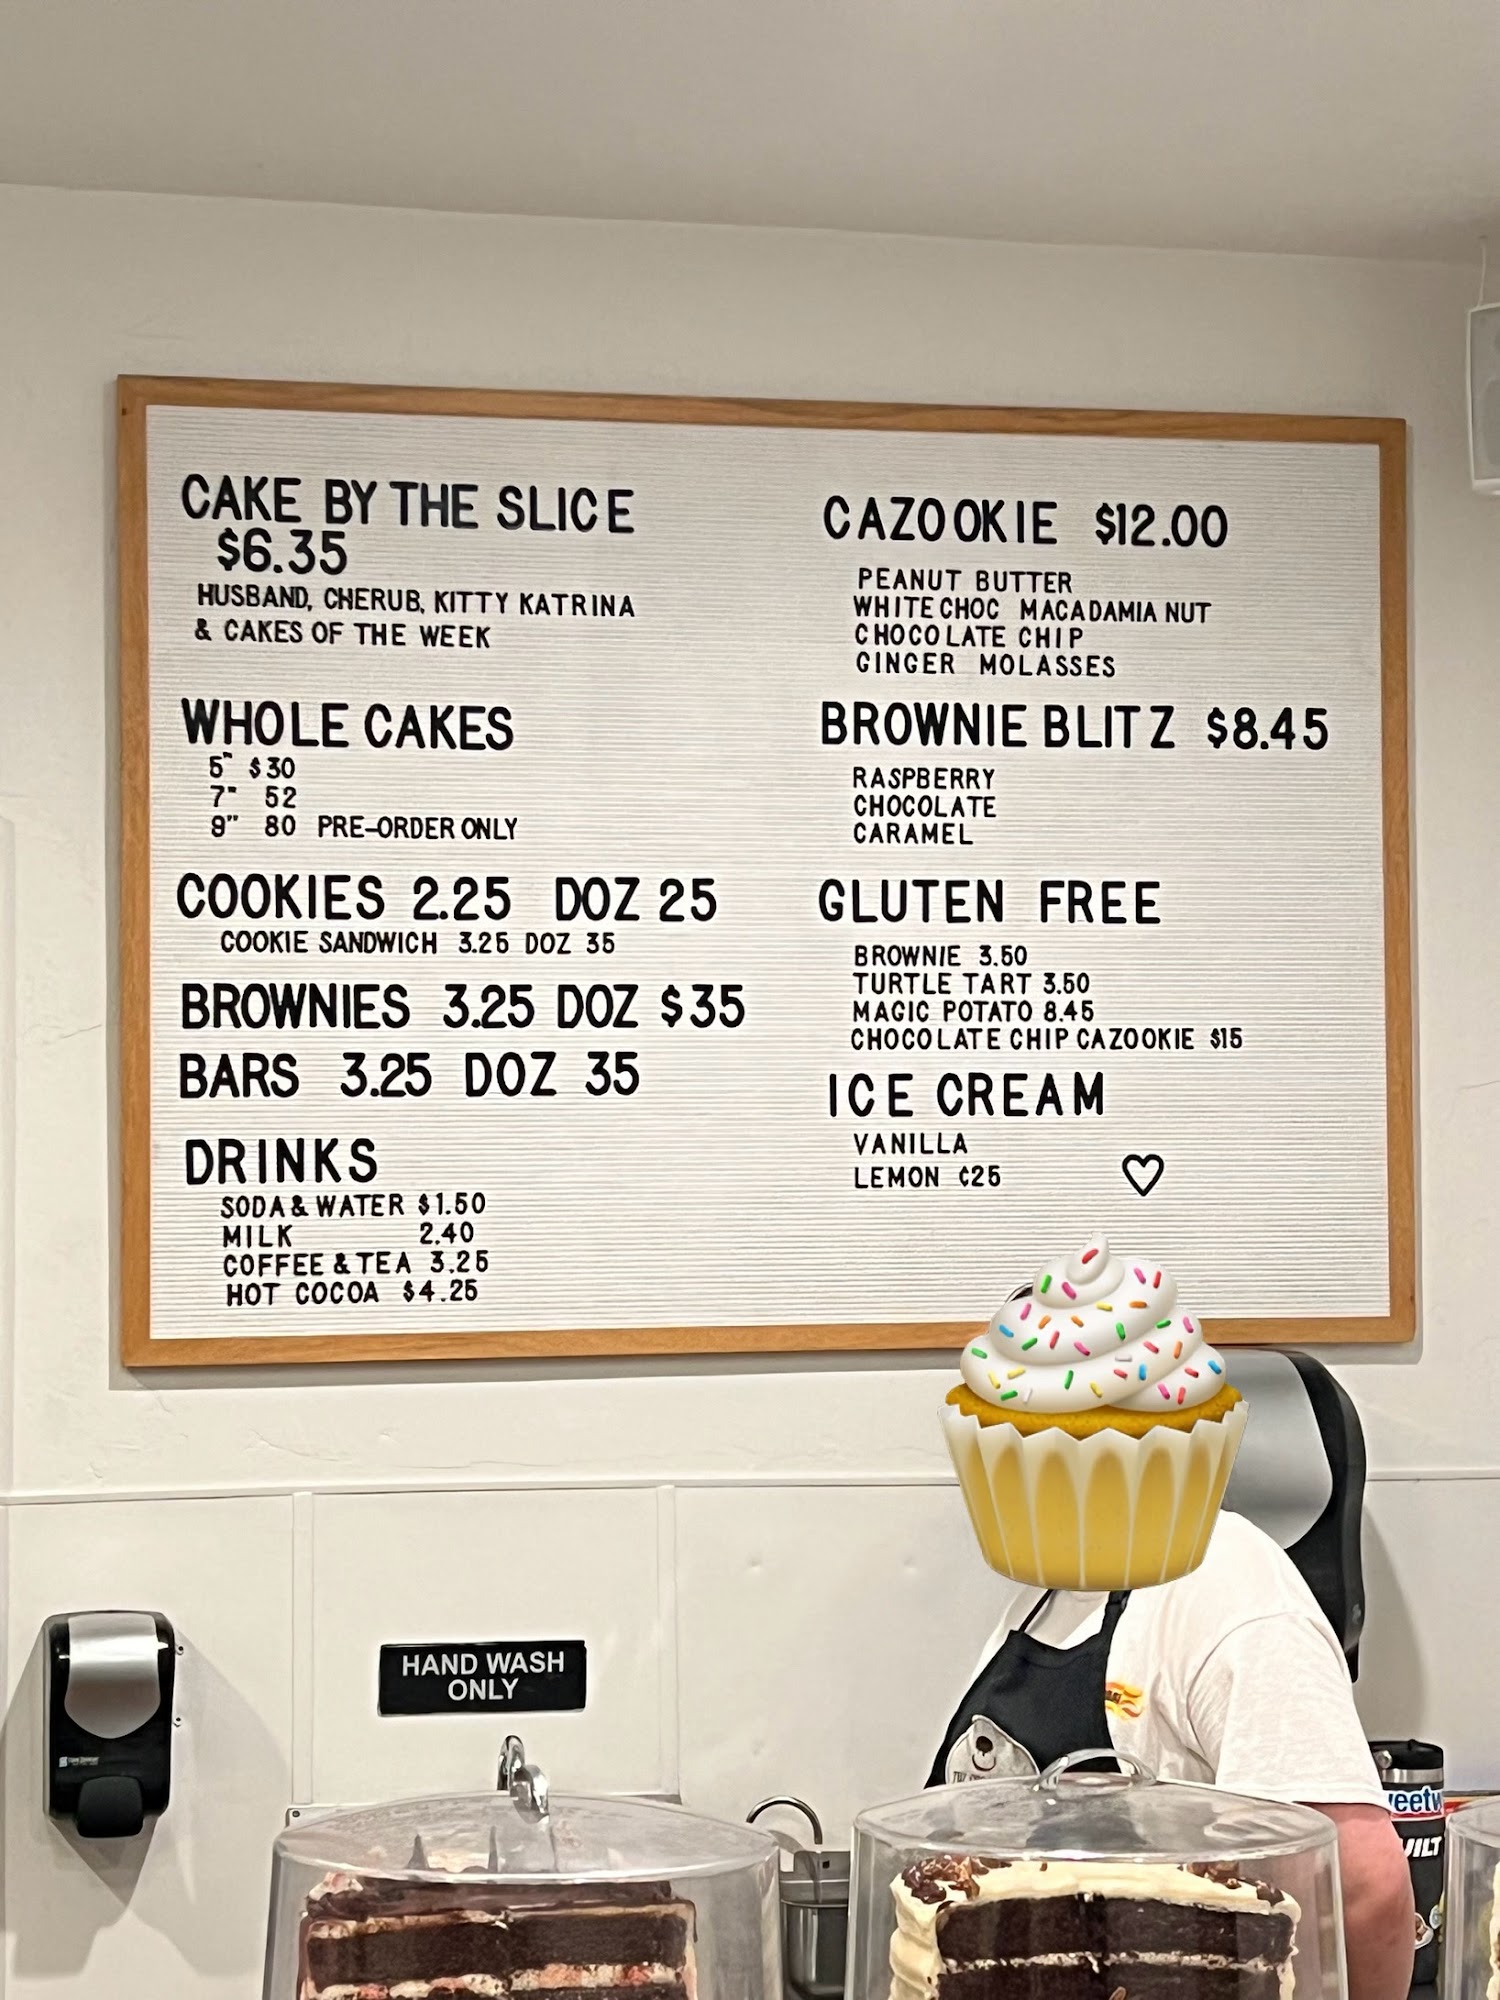 CAKE BY THE SLICE
$6.35
HUSBAND, CHERUB, KITTY KATRINA
& CAKES OF THE WEEK
WHOLE CAKES
5" $30
7" 52
9" 80 PRE-ORDER ONLY
COOKIES 2.25 DOZ 25
COOKIE SANDWICH 3.25 DOZ 35
BROWNIES 3.25 DOZ $35
BARS 3.25 DOZ 35
DRINKS
SODA & WATER $1.50
MILK 2.40
COFFEE & TEA 3.25
HOT COCOA $4.25
CAZOOKIE $12.00
PEANUT BUTTER
WHITE CHOC MACADAMIA NUT
CHOCOLATE CHIP
GINGER MOLASSES
BROWNIE BLITZ $8.45
RASPBERRY
CHOCOLATE
CARAMEL
GLUTEN FREE
BROWNIE 3.50
TURTLE TART 3.50
MAGIC POTATO 8.45
CHOCOLATE CHIP CAZOOKIE $15
ICE CREAM
VANILLA
LEMON ¢25
HAND WASH
ONLY